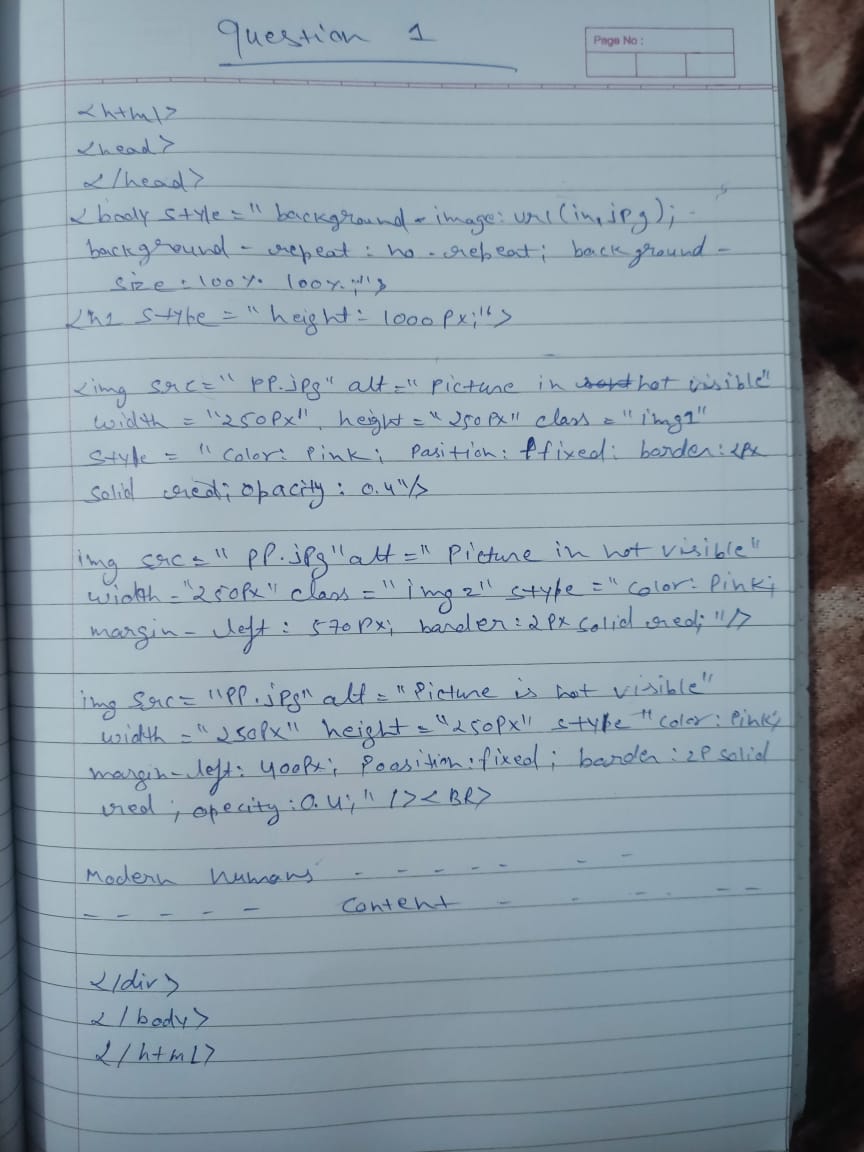 Question 1
Page No :
<html>
<head>
</head>
<body style=" background-image: url(in.jpg);
background-repeat: no-repeat; background-
size: 100% 100%;">
<h1 style=" height: 1000px;">
<img src=" PP.jpg" alt=" picture in not visible"
width = "250px" height = "250px" class = "img1"
style = " color: Pink; Pasition: fixed: border: 2px
solid red; opacity: 0.4"/>
img src=" PP.jpg" alt=" Picture in not visible"
width="250px" class = "img2" style = "color: Pink;
margin-left: 570px; barder: 2px solid red; "/>
img src= "PP.jpg" alt = "Picture is not visible"
width = "250px" height = "250px" style "color: Pink;
margin-left: 400px; Poasition: fixed; barder: 2P solid
red; opecity: 0.4;" /><BR>
Modern humans - - - - - - -
- - - - - Content - - - - - -
</div>
</body>
</html>